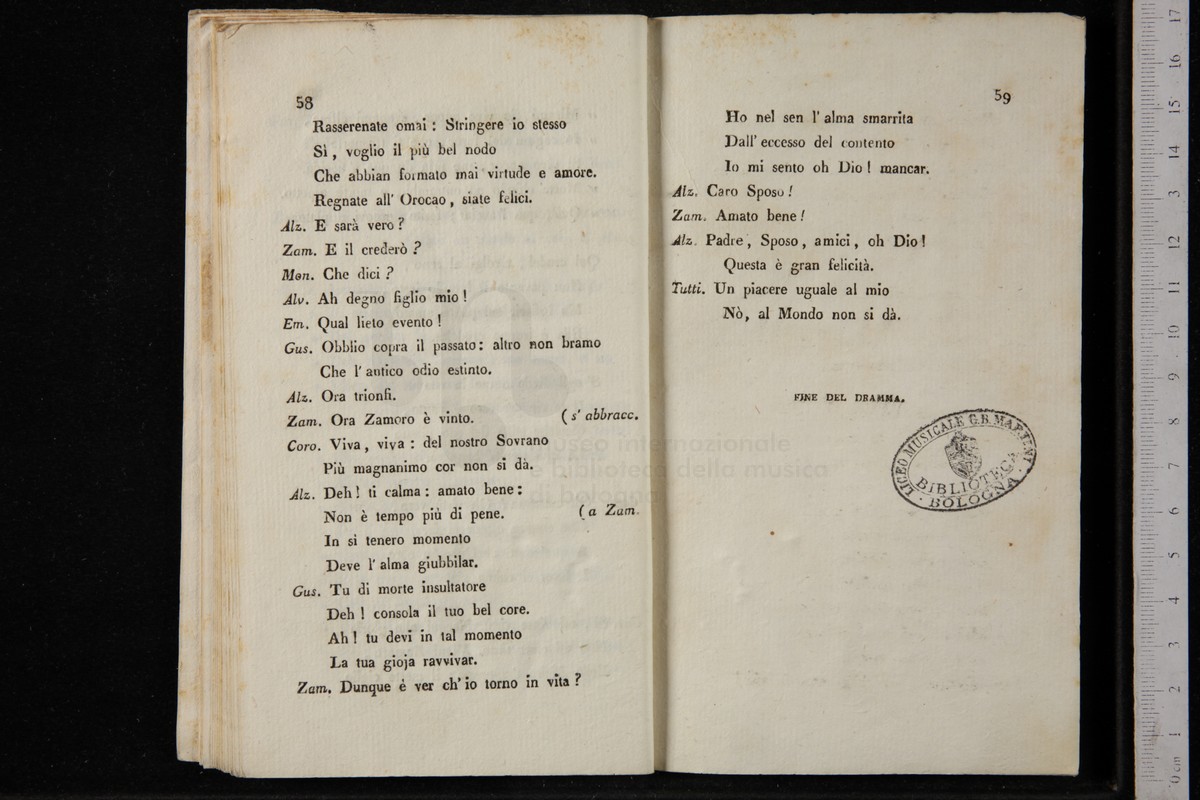 58
Rasserenate omai : Stringere io stesso
Sì , voglio il più bel nodo
Che abbian formato mai virtude e amore.
Regnate all' Orocao , siate felici.
Alz. E sarà vero ?
Zam. E il crederò ?
Mon. Che dici ?
Alv. Ah degno figlio mio !
Em. Qual lieto evento !
Gus. Obblio copra il passato : altro non bramo
Che l' antico odio estinto.
Alz. Ora trionfi.
Zam. Ora Zamoro è vinto. ( s' abbracc.
Coro. Viva , viva : del nostro Sovrano
Più magnanimo cor non si dà.
Alz. Deh ! ti calma : amato bene :
Non è tempo più di pene. ( a Zam.
In sì tenero momento
Deve l' alma giubbilar.
Gus. Tu di morte insultatore
Deh ! consola il tuo bel core.
Ah ! tu devi in tal momento
La tua gioja ravvivar.
Zam. Dunque è ver ch' io torno in vita ?
59
Ho nel sen l' alma smarrita
Dall' eccesso del contento
Io mi sento oh Dio ! mancar.
Alz. Caro Sposo !
Zam. Amato bene !
Alz. Padre , Sposo , amici , oh Dio !
Questa è gran felicità.
Tutti. Un piacere uguale al mio
Nò, al Mondo non si dà.
FINE DEL DRAMMA.
LICEO MUSICALE G.B. MARTINI
BIBLIOTECA
BOLOGNA
museo internazionale
e biblioteca della musica
di bologna
0 cm 1 2 3 4 5 6 7 8 9 10 11 12 13 14 15 16 17